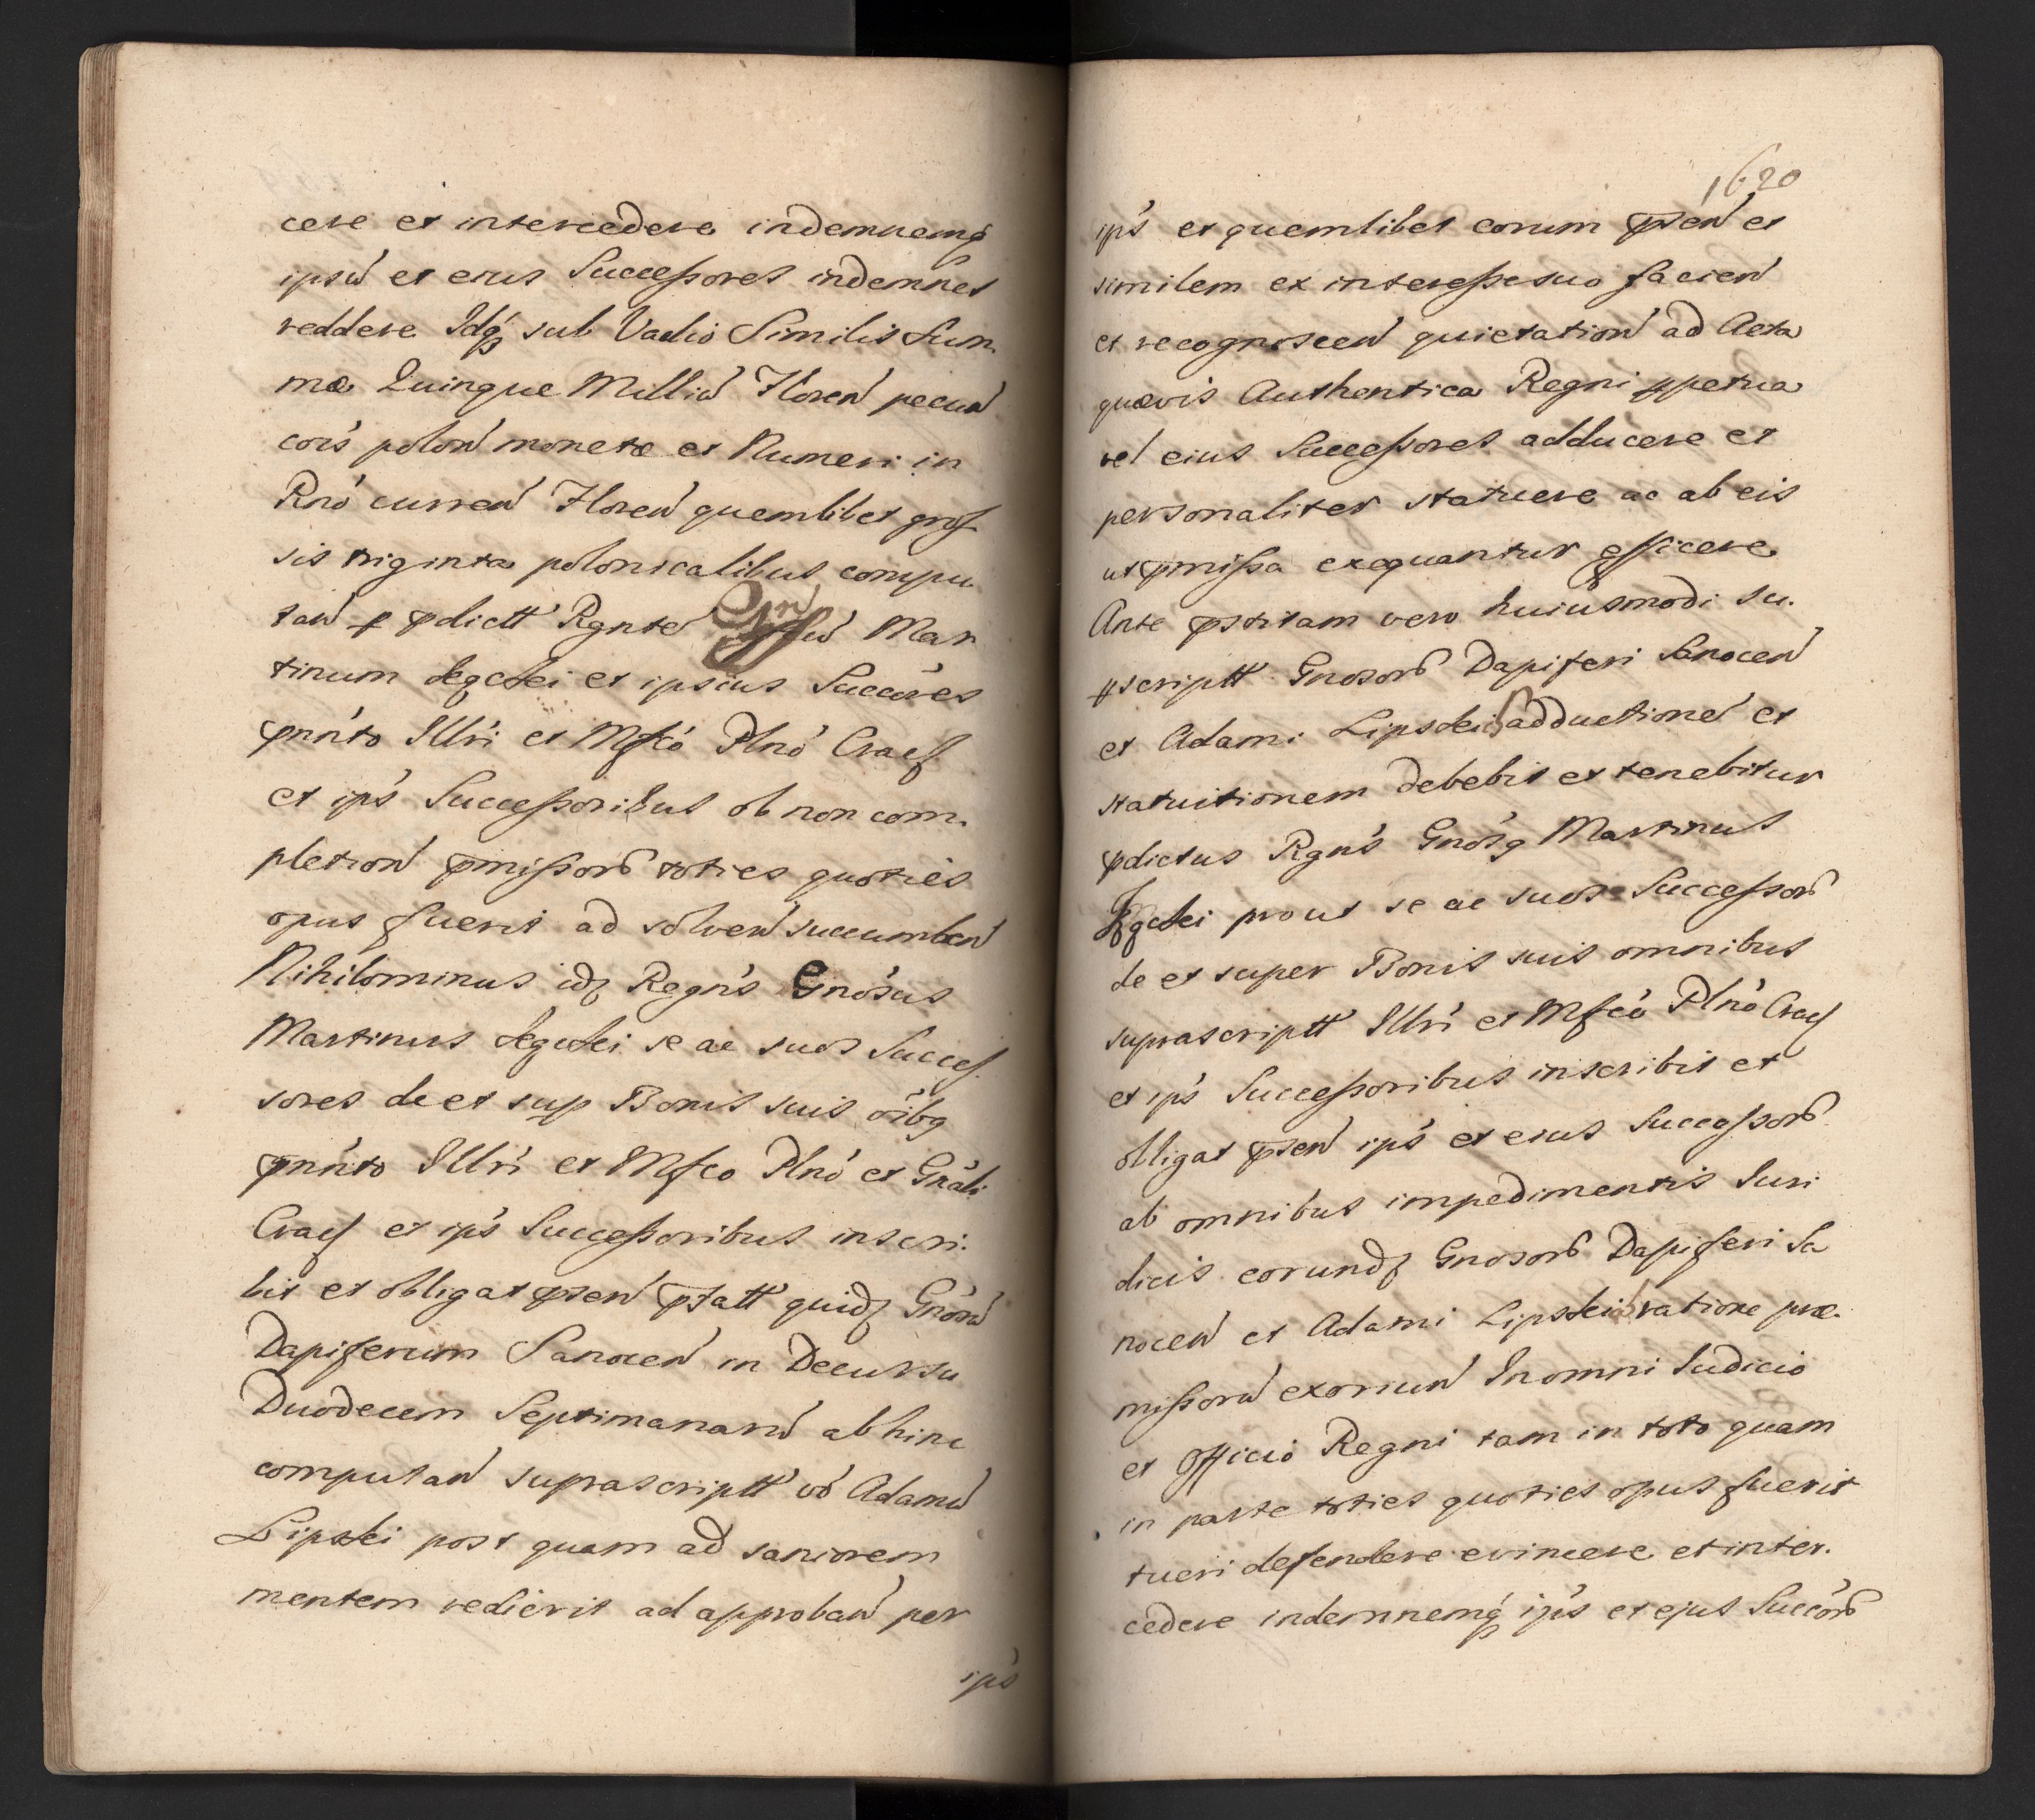 cere et intercedere indemnemq
ipsū et eius Successores indemnes
reddere Idq sub Vadio Similis Sum
mæ Quinque Milliū Floren pecun
cois polon monetæ et Numeri in
Rnó curren Floren quemlibet gros
sis triginta polonicalibus compu
tan p pdictt Rgnte Mar
tinum et ipsius Succóres
pnnto Illri et Mfcó Plnó Crac
et ips Successoribus ob non com.
pletion pmissorb toties quoties
opus fuerit ad solven succumben
Nihilominus idz Regn's Gnósus
Martinus se ac suos Succes.
sores de et sup Bonis suis oibq
pnnto Illri et Mfco Plnó et Gnali
Crac et ips Successoribus inscri.
bit et obligat psen pfatt quidz Gnosu
Dapiferum Sanocen in Decursu
Duodecem Septimanarū abhinc
computan suprascriptt vó Adamū
Lipski post quam ad saniorem
mentem redierit ad approban per
ips
1620
ips et quemlibet eorum psen et
similem ex interesse suo facien
et recognoscen quietation ad Acta
quævis Authentica Regni ppetua
vel eius Successores adducere et
personaliter statuere ac ab eis
ut pmissa exequantur efficere
Ante pstitam vero huiusmodi su.
pscriptt Gnosorb Dapiferi Sanocen
et Adami Lipski adductione et
statuitionem debebit et tenebitur
pdictus Rgn's Gnósq Martinus
prout se ac suos Successorb
de et super Bonis suis omnibus
suprascriptt Illri et Mfcó Plnó Crac
et ips Successoribus inscribit et
obligat psen ips et eius Successorb
ab omnibus impedimentis Juri
dicis eorundz Gnosorb Dapiferi Sa
nocen et Adami Lipski ratione præ.
missorū exoriun In omni Judicio
et officio Regni tam in toto quam
in parte toties quoties opus fuerit
tueri defendere evincere et inter.
cedere indemnemq ips et ejus Succórb